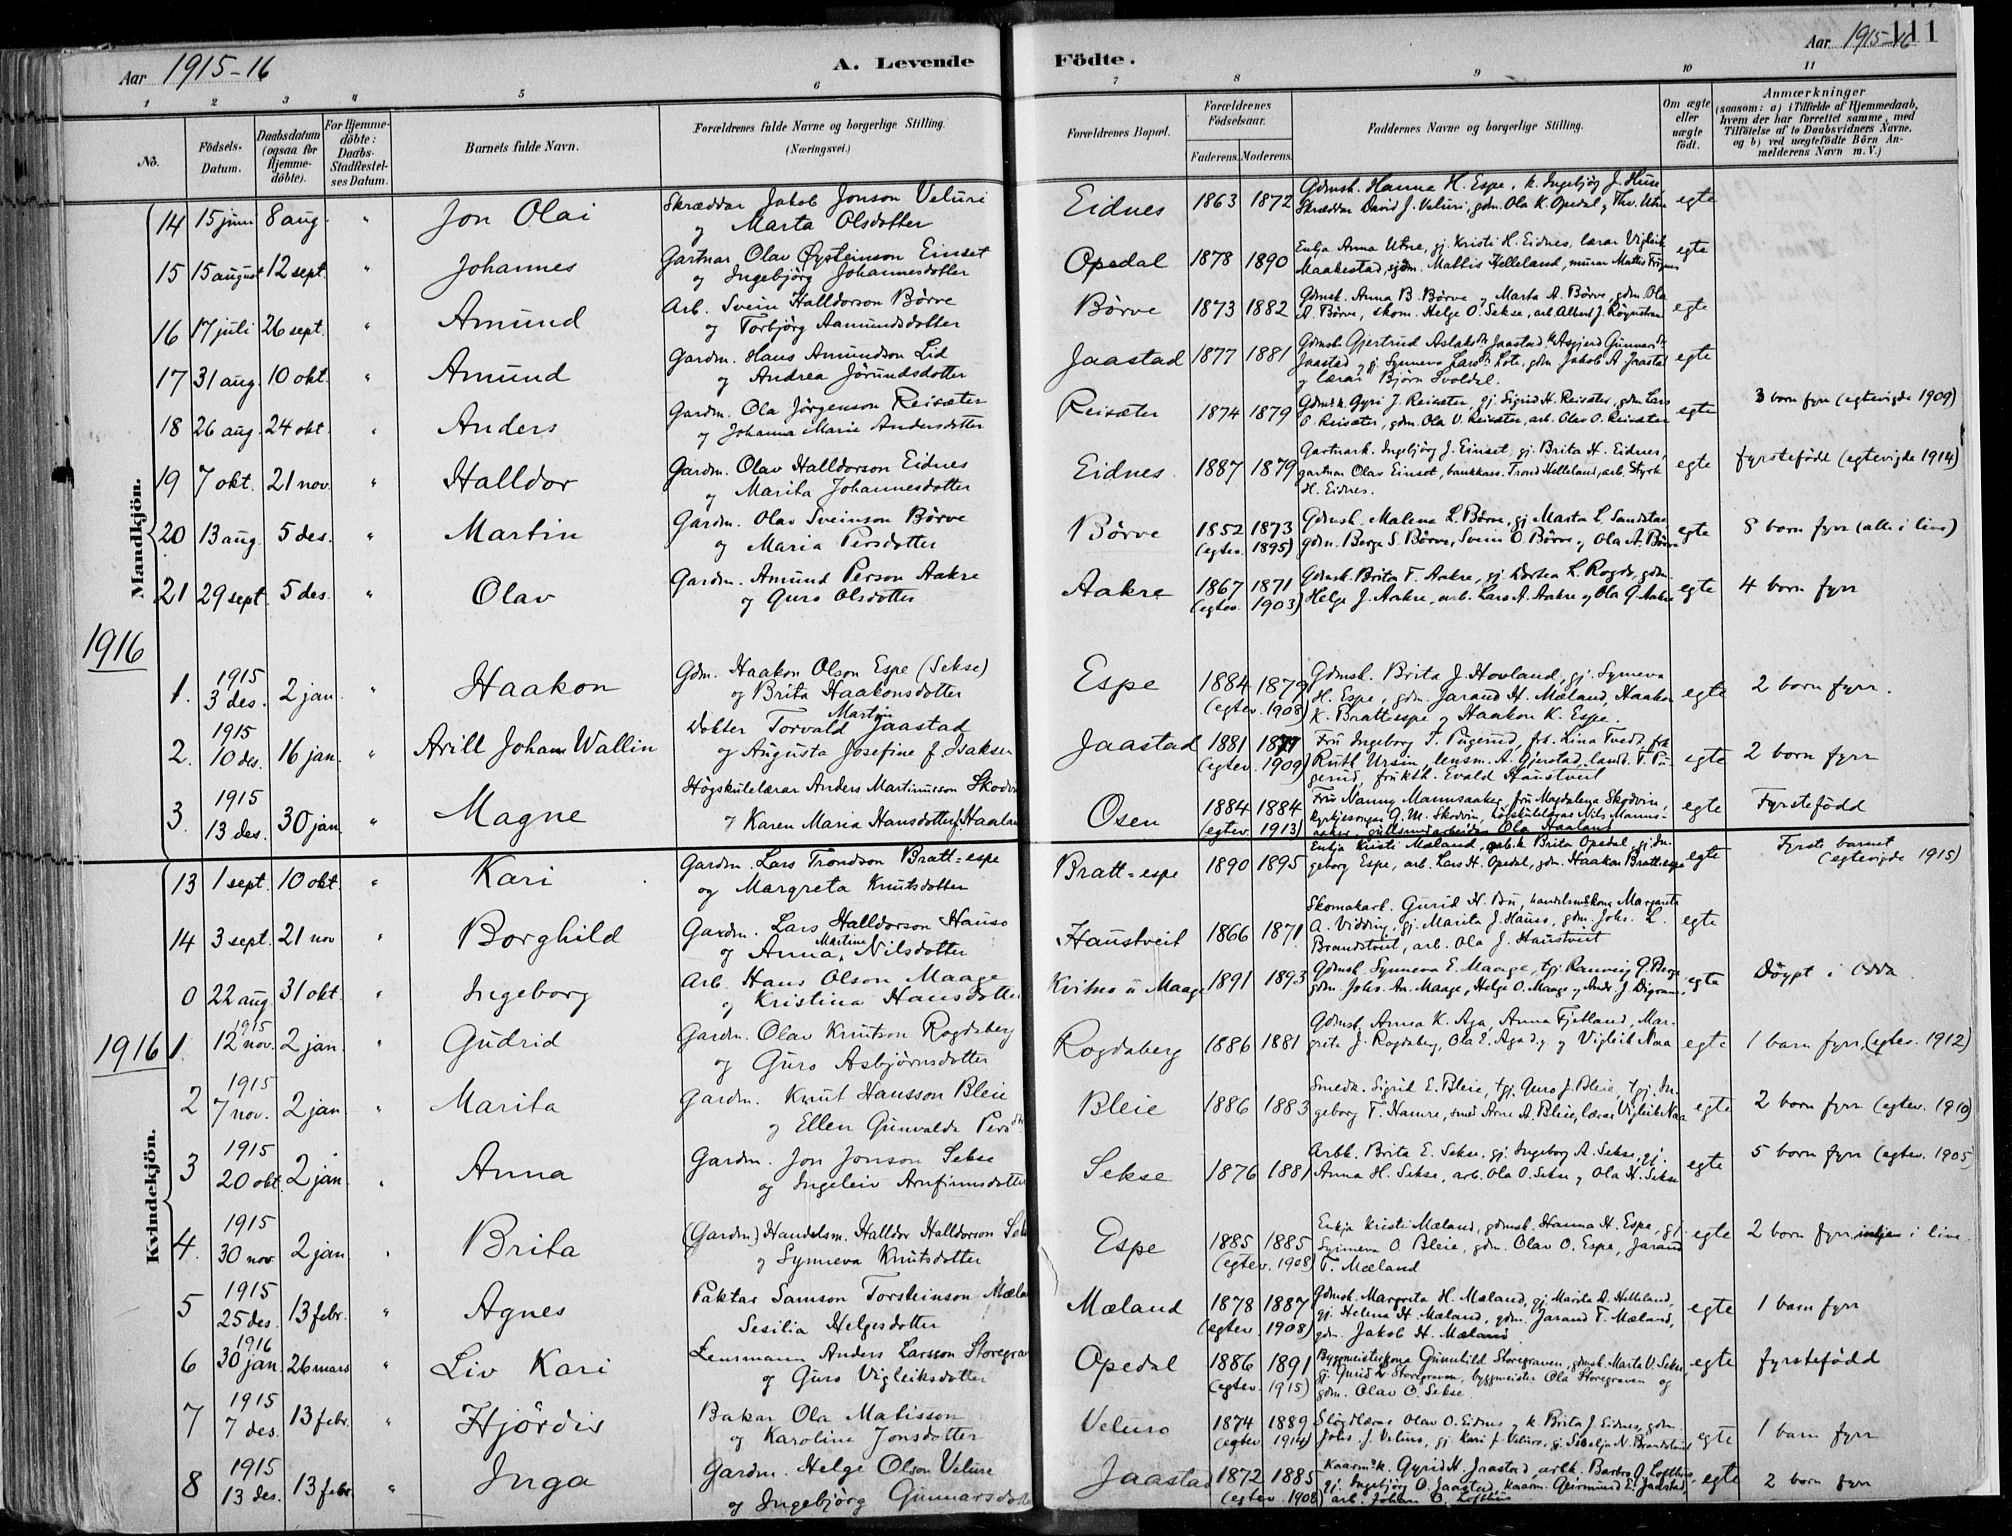 Aar 1915-16
A. Levende Födte.
Aar 1915-16
111
1 2 3 4 5 6 7 8 9 10 11
No.
Födsels-Datum.
Daabsdatum (ogsaa for Hjemme-döbte).
For Hjemme-döbte: Daabs-Stadfæstel-ses Datum.
Barnets fulde Navn.
Forældrenes fulde Navne og borgerlige Stilling. (Næringsvei.)
Forældrenes Bopæl.
Forældrenes Födselsaar.
Faderens. Moderens.
Faddernes Navne og borgerlige Stilling.
Om ægte eller uægte födt.
Anmærkninger
(saasom: a) i Tilfælde af Hjemmedaab, hvem der har forrettet samme, med Tilföielse af to Daabsvidners Navne. og b) ved uægtefödte Börn An-melderens Navn m. V.)
Mandkjön.
14 15 juni 8 aug. " Jon Olai Skræddar Jakob Jonson Veluri og Marta Olsdotter Eidnes 1863 1872 Gdmsk. Hanna H. Espe, k. Ingebjög J. Huse Skræddar David J. Veluri, gdm. Ola K. Opedal, Utne egte
15 15 august 12 sept. " Johannes Gartnar Olav Øysteinson Einset og Ingebjörg Johannesdotter Opedal 1878 1890 Enkja Anna Utne, gj. Kristi H. Eidnes, lærar Vigleik Maakestad, Mattis Helleland, murar egte
16 17 juli 26 sept. " Amund Arb. Svein Halldorson Börve og Torbjörg Aamundsdotter Börve 1873 1882 Gdmsk. Anna B. Börve, Marta A. Börve, gdm. Ola A. Börve, skom. Helge O. Sekse, arb. Albert J. egte
17 31 aug. 10 okt. " Amund Gardm. Hans Amundson Lid og Andrea Jörundsdotter Jaastad 1877 1881 Gdmsk Gjertrud Jaastad Jaastad, gj. Synneva Lote, gdm Jakob A Jaastad og lærar Björn egte
18 26 aug. 24 okt. " Anders Gardm. Ola Jörgenson Reisæter og Johanna Marie Andersdotter Reisæter 1874 1879 Gdmsk. Gyri J. Reisæter, gj. Sigrid H. Reisæter, gdm Lars O. Reisæter, gdm. Ola V. Reisæter, arb. Olav O. Reisæter egte 3 born fyrr (egtevigde 1909)
19 7 okt. 21 nov. " Halldor Gardm. Olav Halldorson Eidnes og Marita Johannesdotter Eidnes 1887 1879 Gartnark. Ingebjög J. Einset, gj. Brita H. Eidnes, gartnar Olav Einset, bankkass. Trond Helleland, arb. Styrk H. Eidnes. egte fyrstefödt (egtevigde 1914)
20 13 aug. 5 des. " Martin Gardm. Olav Sveinson Börve og Maria Persdotter Börve 1852 1873 (egtev. 1895) Gdmsk. Malena L. Börve, gj Marta L. Sandstaa, gdm. Borge S. Börve, Svein O. Börve og Ola A. Börve egte 8 born fyrr (alle i live)
21 29 sept. 5 des. " Olav Gardm. Amund Person Aakre og Guro Olsdotter Aakre 1867 1871 (egtev. 1903) Gdmsk. Brita T. Aakre, gj. Dortea L. Rogde, gdm. Helge J. Aakre, arb. Lars A. Aakre og Ola G. Aakre egte 4 born fyrr
1916
1. 1915 3 des. 2 jan. " Haakon Gdm. Haakon Olson Espe (Sekse) og Brita Haakonsdotter Espe 1884 1879 (egtev. 1908) Gdmsk. Brita J. Hovland, gj. Synneva H. Espe, gdm. Jarand H. Mæland, Haakon K. Brattespe og Haakon K. Espe. egte 2 born fyrr.
2. 1915 10 des. 16 jan. " Arill Johan Wallin Dokter Torvald Martin Jaastad og Augusta Josefine f. Isaksen Jaastad 1881 1877 (egtev. 1909) Fru Ingeborg T. Pugerud, frk. Lina Tvedt, frk Ruth Ursin, lensm. A. Gjerstad, landh. T. Pugerud, frukth. Evald Haustveit egte 2 born fyrr
3. 1915 13 des. 30 jan. " Magne Högskulelærar Anders Martinusson Skodvin og Karen Maria Hansdotter f. Haaland Osen 1884 1884 (egtev. 1913) Fru Nanny Mannsaaker, fru Magdalena Skodvin, kyrkjesongar G. M. Skodvin, högskulelærar Nils Mannsaaker, gullsmedarbeidar Ola Haaland egte Fyrstefödd
Kvindekjön.
13 1 sept. 10 okt. " Kari Gardm. Lars Trondson Bratt=espe og Margreta Knutsdotter Bratt=espe 1890 1895 Enkja Kristi Mæland, arb.k. Brita Opedal, gj. Ingeborg Espe, arb. Lars H. Opedal, gdm. Haakon Brattespe egte Fyrste barnet (egtevigde 1915)
14 3 sept. 21 nov " Borghild Gardm. Lars Halldorson Hauso og Anna Martine Nilsdotter Haustveit 1866 1871 Skomakark. Gurid H. Bu, handelsmskona Margareta A. Vidding, gj. Marita J. Hauso, gdm. Johs. L. Brandstveit, arb. Ola J. Haustveit egte
0 22 aug. 31 okt. " Ingeborg Arb. Hans Olson Maage og Kristina Hansdotter Kvitno ü Maage 1891 1893 Gdmsk Synneva E. Maage, tj. Ranveig G. Berge gdm. Johs. An. Maage, Helge O. Maage og Andr. J. Digranes egte Döypt i Odda
1916
1. 1915 12 nov. 2 jan. " Gudrid Gardm. Olav Knutson Rogdaberg og Guro Asbjörnsdotter Rogdaberg 1886 1881 Gdmsk. Anna K. Aga, Anna Tjelland, Margrita J. Rogdaberg, Ola E. Aga d.y. og Vigleik Naa egte 1 barn fyrr, (egtev. 1912)
2 1915 7 nov. 2 jan " Marita Gardm. Knut Hansson Bleie og Ellen Gunvalda Persdtr Bleie 1886 1883 Smedk. Sigrid E. Bleie, tj. Guro J. Bleie, tj. Ingeborg T. Hamre, smed Arne A. Bleie, lærar Vigleik Naa egte 2 born fyrr (egtev. 1910)
3 1915 20 okt. 2 jan. " Anna Gardm. Jon Jonson Sekse og Ingeleiv Arnfinnsdotter Sekse 1876 1881 Arbk. Brita E. Sekse, gj. Ingeborg A. Sekse, gj. Anna H. Sekse, arb. Ola O. Sekse og Ola H. Sekse egte 5 born fyrr (egtev. 1905)
4. 1915 30 nov 2 jan " Brita (Gardm) Handelsm. Halldor Halldorson Sekse og Synneva Knutsdotter Espe 1885 1885 (egtev. 1908) Enkja Kristi Mæland, gdmsk. Hanna H. Espe, gj. Synneva O. Bleie, gdm. Olav O. Espe, Jarand T. Mæland egte 2 born fyrr, inkje i live.
5 1915 25 des. 13 febr. " Agnes Paktar Samson Torsteinson Mæland Sesilia Helgesdotter Mæland 1878 1887 (egtev. 1908) Gdmsk. Margreta H. Mæland, gj. Marita A. Helleland, gj. Helena H. Mæland, gdm. Jarand T. Mæland, gdm. Jakob H. Mæland egte 1 barn fyrr
6 1916 30 jan. 26 mars " Liv Kari Lensmann Anders Larsson Storegraven og Guro Vigleiksdotter Opedal 1886 1891 (egtev. 1915) Byggmeisterkona Gunnhild Storegraven, gdmsk. Marta V. Sekse, gj. Gurid Storegraven, byggmeister Ola Storegraven og gdm. Olav O. Sekse. egte fyrstefödd
7 1915 7 des. 13 febr. " Hjördis Bakar Ola Matisson og Karoline Jonsdotter Veluro 1874 1889 (egtev. 1914) Slöydlærar Olav O. Eidnes og k. Brita J. Eidnes, gdm. Johs. J. Veluro, gj. Kari J. Veluro, gj. N. egte 1 barn fyrr
8 1915 13 des. 13 febr. " Inga Gardm. Helge Olson Velure og Ingebjörg Gunnarsdotter Jaastad 1872 1885 (egtev. 1908) Kaarmk. Gyrid H Jaastad, arbk. Barbro O. Lofthus, gj. Ingebjörg O. Jaastad, kaarm. Geirmund E. Jaastad, arb. Johan O. Lofthus egte 2 born fyrr